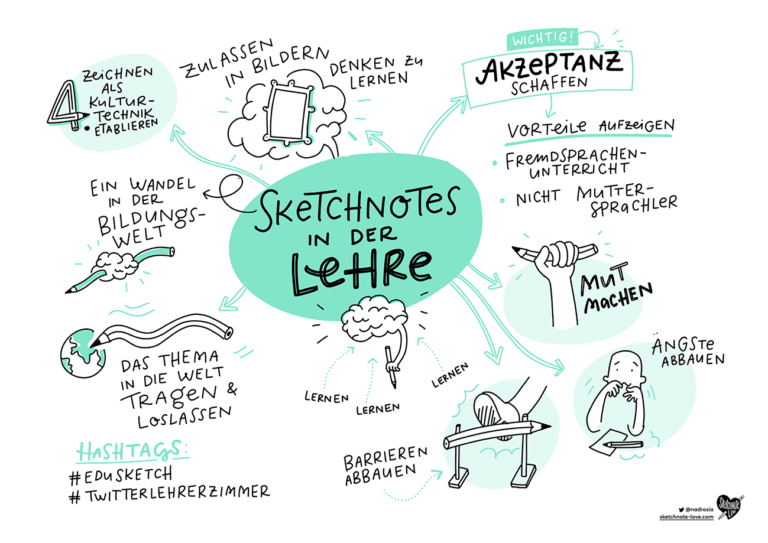 SKETCHNOTES
IN DER
LEHRE
4.
ZEICHNEN
ALS
KULTUR-
TECHNIK
ETABLIEREN
ZULASSEN
IN BILDERN
DENKEN ZU
LERNEN
WICHTIG!
AKZEPTANZ
SCHAFFEN
VORTEILE AUFZEIGEN
• FREMDSPRACHEN-
UNTERRICHT
• NICHT MUTTER-
SPRACHLER
EIN WANDEL
IN DER
BILDUNGS-
WELT
MUT
MACHEN
DAS THEMA
IN DIE WELT
TRAGEN &
LOSLASSEN
LERNEN
LERNEN
LERNEN
ÄNGSTE
ABBAUEN
BARRIEREN
ABBAUEN
HASHTAGS:
#EDUSKETCH
#TWITTERLEHRERZIMMER
@nadrosia
sketchnote-love.com